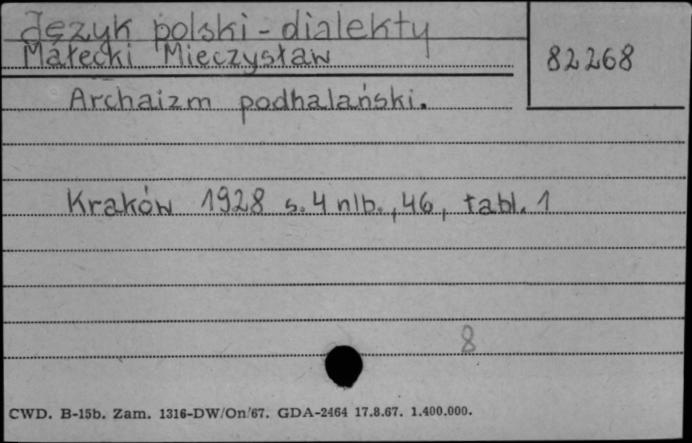 Język polski - dialekty
Małecki Mieczysław
82268
Archaizm podhalański.
Kraków 1928 s. 4 nlb., 46, tabl. 1
8
CWD. B-15b. Zam. 1316-DW/On/67. GDA-2464 17.8.67. 1.400.000.